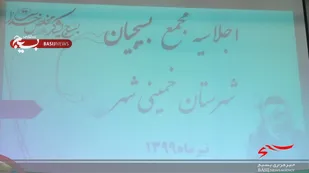 اجلاسیه مجمع بسیجیان
شهرستان خمینی شهر
تیرماه ۱۳۹۹
بسیج
BASIJNEWS
خبرگزاری بسیج